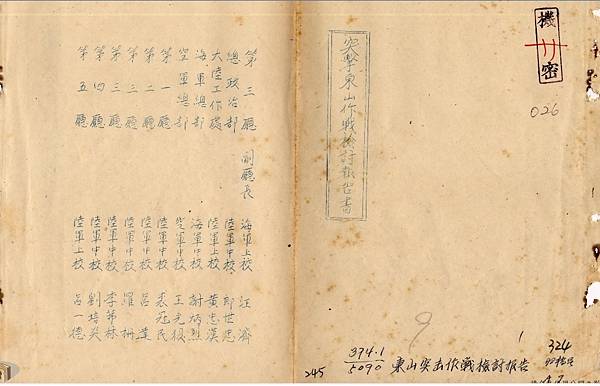 機密
026
突擊東山作戰檢討報告書
9
1
324
394.1
5090
東山突击作戰檢討报告
245
第三廳 副廳長 海軍上校 汪濟
總政治部 陸軍中校 郎世忠
大陸工作處 陸軍上校 黃志漢
海軍總部 海軍中校 謝炳烈
空軍總部 空軍中校 王光復
第一廳 陸軍中校 袁冠民
第二廳 陸軍中校 呂
第三廳 陸軍中校 羅
第三廳 陸軍中校 李弗林
第四廳 陸軍中校 劉培
第五廳 陸軍上校 呂一德